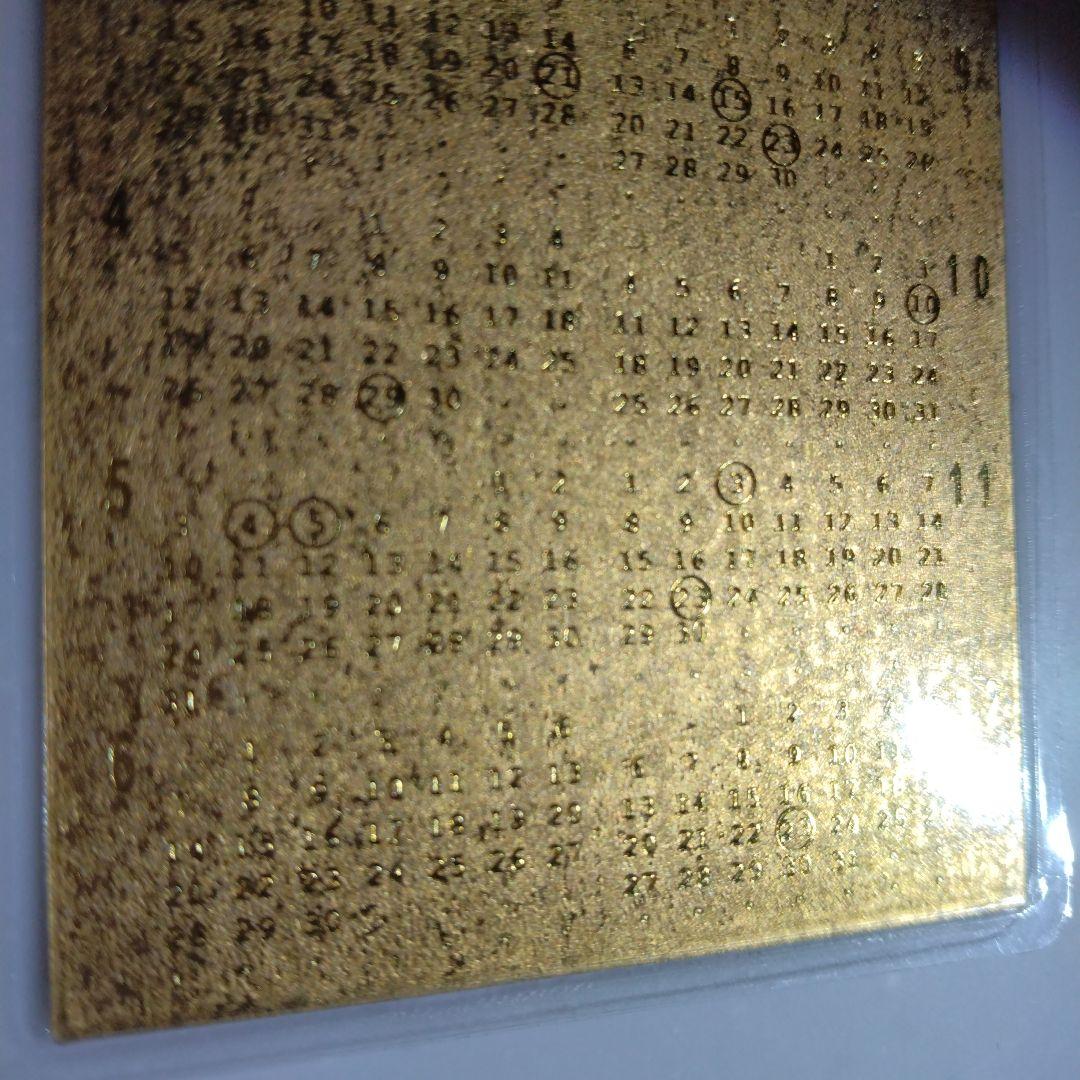 10 11 12 13 14
15 16 17 18 19 20 21
22 23 24 25 26 27 28
29 30 31
4
1 2 3 4
6 7 8 9 10 11
12 13 14 15 16 17 18
19 20 21 22 23 24 25
26 27 28 29 30
5
1 2
3 4 5 6 7 8 9
10 11 12 13 14 15 16
18 19 20 21 22 23
24 25 26 27 28 29 30
31
6
1 2 3 4 5 6
8 9 10 11 12 13
14 15 16 17 18 19 20
21 22 23 24 25 26 27
28 29 30
9
1 2 3 4 5
6 7 8 9 10 11 12
13 14 15 16 17 18 19
20 21 22 23 24 25 26
27 28 29 30
10
1 2 3
4 5 6 7 8 9 10
11 12 13 14 15 16 17
18 19 20 21 22 23 24
25 26 27 28 29 30 31
11
1 2 3 4 5 6 7
8 9 10 11 12 13 14
15 16 17 18 19 20 21
22 23 24 25 26 27 28
29 30
1 2 3 4
6 7 8 9 10
13 14 15 16 17
20 21 22 23 24 25
27 28 29 30 31